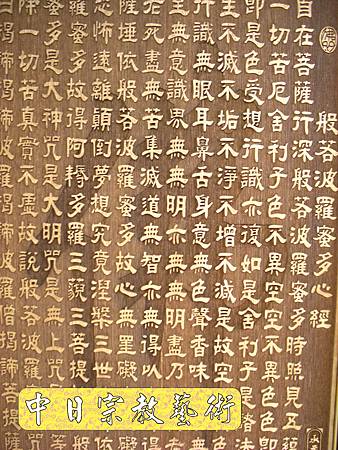 般若波羅蜜多心經
自在菩薩行深般若波羅蜜多時照見五蘊
一切苦厄舍利子色不異空空不異色色即
即是色受想行識亦復如是舍利子是諸法
生不滅不垢不淨不增不減是故空
行識無眼耳鼻舌身意無色聲香味
無意識界無無明亦無無明盡乃
死盡無苦集滅道無智亦無得以
薩埵依般若波羅蜜多故心無罣礙
恐怖遠離顛倒夢想究竟涅槃三世
蜜多故得阿耨多羅三藐三菩提
蜜多是大神咒是大明咒是無上咒
除一切苦真實不虛故說般若波羅
曰揭諦揭諦波羅揭諦波羅僧揭諦菩提薩
中日宗教藝術